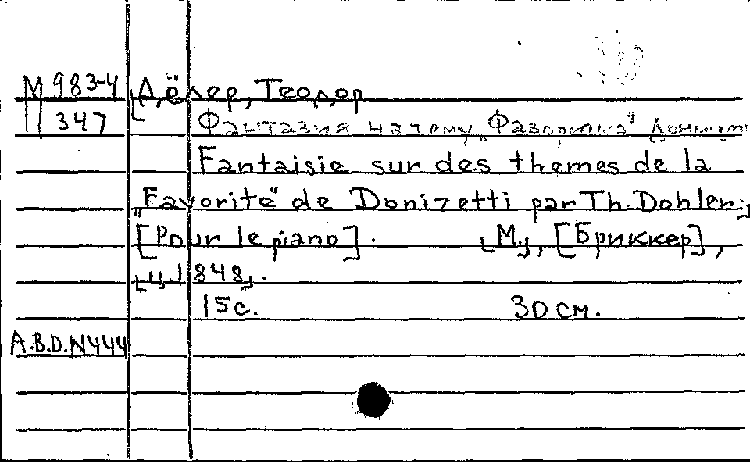 М 983-4 Дёлер, Теодор
347 Фантазия на тему „Фаворитка"
Fantaisie sur des themes de la
„Favorite" de Donizetti par Th. Dohler;
[Pour le piano]. [М.], [Бриккер],
[ц. 1848].
15с. 30 см.
A.B.D.N444